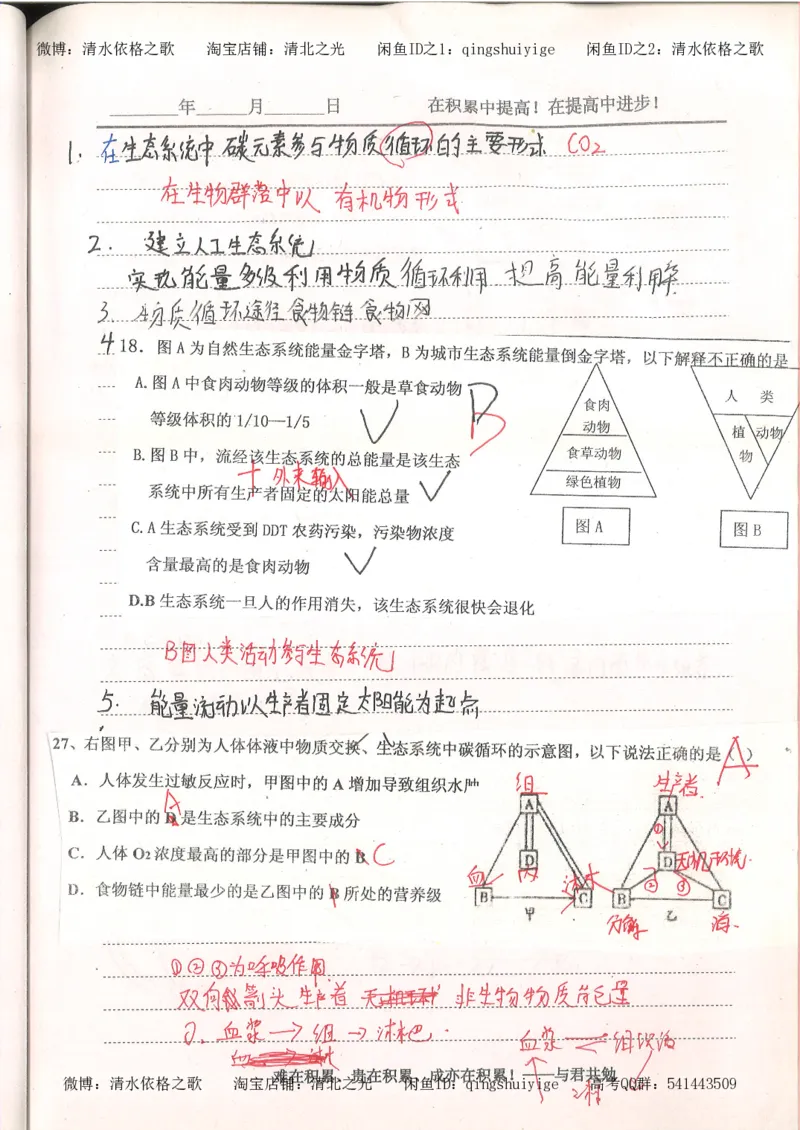 微博：清水依格之歌 淘宝店铺：清北之光 闲鱼ID之1：qingshuiyige 闲鱼ID之2：清水依格之歌
年 月 日 在积累中提高！在提高中进步！
1. 在生态系统中碳元素参与物质循环的主要形式 CO2
在生物群落中以 有机物形式
2. 建立人工生态系统
实现能量多级利用物质循环利用 提高能量利用率
3. 物质循环途径食物链食物网
4 18．图 A 为自然生态系统能量金字塔，B 为城市生态系统能量倒金字塔，以下解释不正确的是
A.图 A 中食肉动物等级的体积一般是草食动物
等级体积的 1/10—1/5
B
B.图 B 中，流经该生态系统的总能量是该生态
＋外来输入
系统中所有生产者固定的太阳能总量
C.A 生态系统受到 DDT 农药污染，污染物浓度
含量最高的是食肉动物
D.B 生态系统一旦人的作用消失，该生态系统很快会退化
食肉
动物
食草动物
绿色植物
图 A
人 类
植 动物
物
图 B
B图人类活动参与生态系统
5. 能量流动以生产者固定太阳能为起点
27、右图甲、乙分别为人体体液中物质交换、生态系统中碳循环的示意图，以下说法正确的是（ ）
A
A．人体发生过敏反应时，甲图中的 A 增加导致组织水肿
A
B．乙图中的 D 是生态系统中的主要成分
C．人体 O2 浓度最高的部分是甲图中的 B C
D．食物链中能量最少的是乙图中的 B 所处的营养级
组
A
D
血 内
B C
甲
生产者
A
①
D
② ③
B C
分解 消
乙
①②③为呼吸作用
双向箭头 生产者 非生物物质前已量
血浆 → 组 → 淋巴
血浆 组织液
难在积累，贵在积累，成亦在积累！——与君共勉
微博：清水依格之歌 淘宝店铺：清北之光 闲鱼ID：qingshuiyige 高考QQ群：541443509